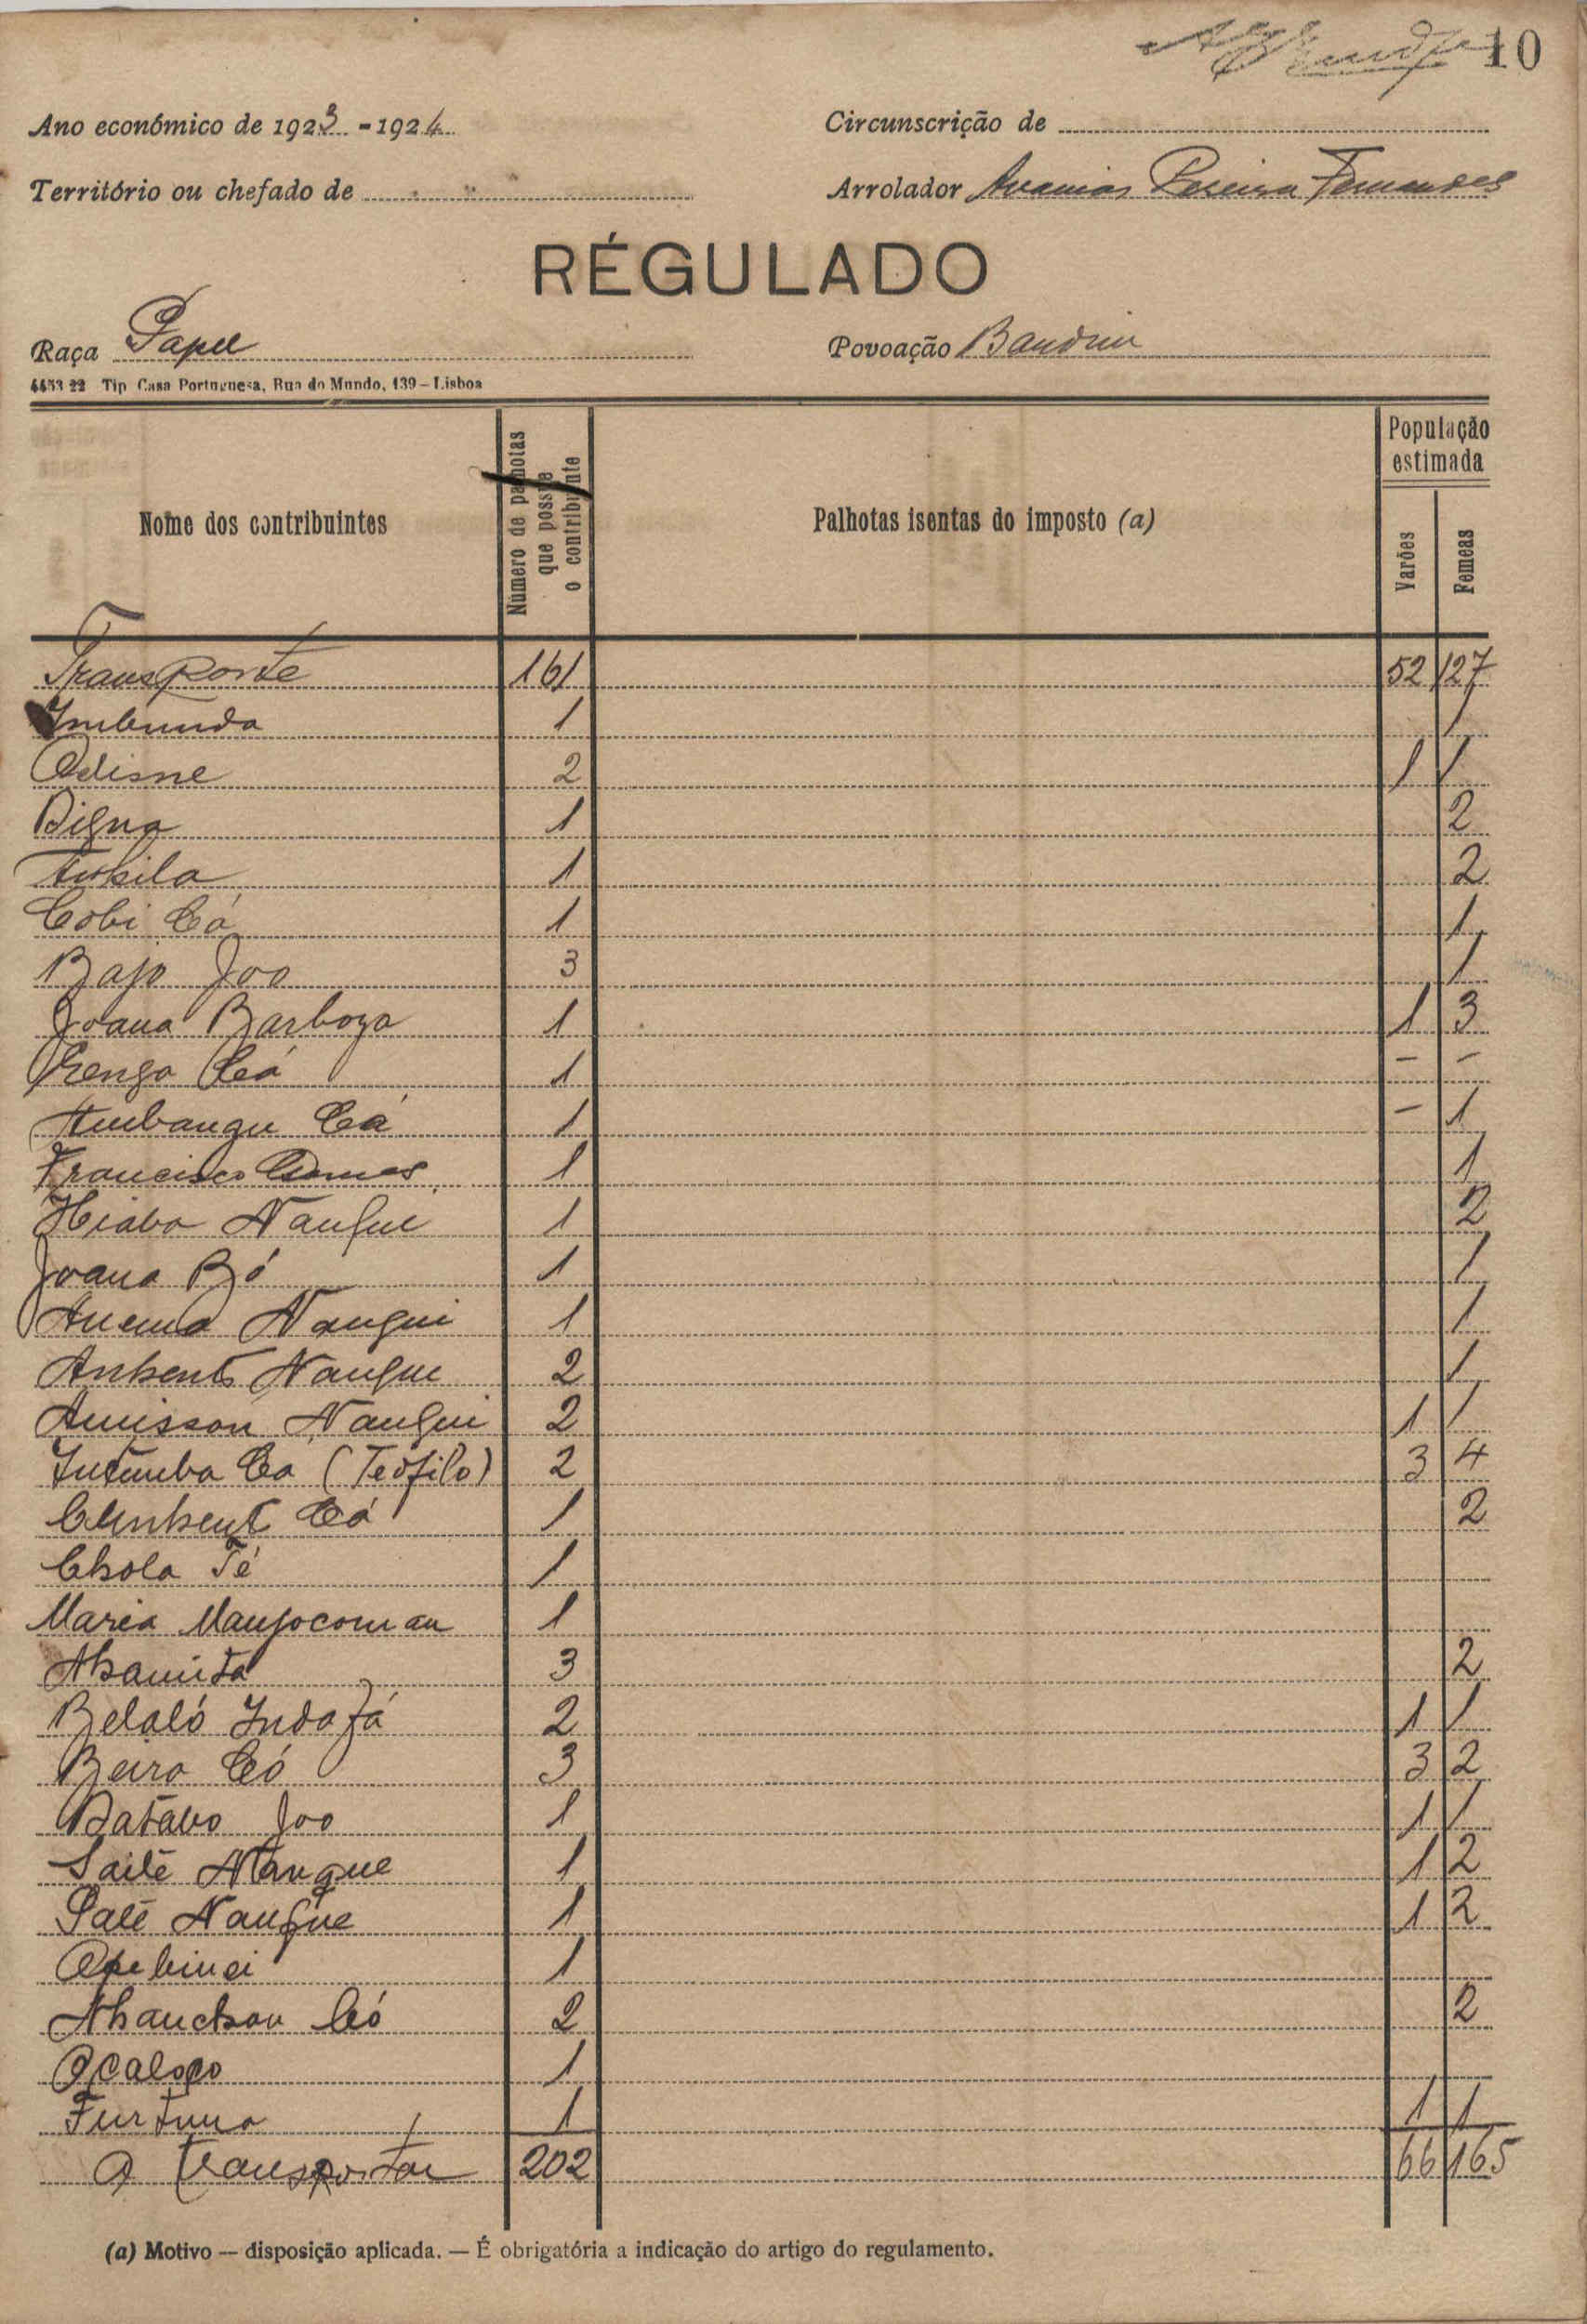 10
Ano económico de 1923 - 1924 Circunscrição de
Território ou chefado de Arrolador Ananias Pereira Fernandes
RÉGULADO
Raça Papel Povoação Bandim
4453 22 Tip Casa Portuguesa, Rua do Mundo, 139 - Lisboa
Nome dos contribuintes Número de palhotas que possue o contribuinte Palhotas isentas do imposto (a) População estimada Varões Femeas
Transporte 161 52 127
Imbunda 1 1
Odisne 2 1 1
Digna 1 2
1 2
Cobi Cá 1 1
Bajo Joo 3 1
Joana Barboza 1 1 3
Cá 1 - -
Cá 1 - 1
Francisco Gomes 1 1
Nangui 1 2
Joana Bó 1 1
Nangui 1 1
Ankent Nangue 2 1
Amisson Nangui 2 1 1
Intumba Ca (Teófilo) 2 3 4
Cá 1 2
Chola Té 1
Maria Manjocoman 1
Nhamita 3 2
Belaló Indafá 2 1 1
Beira Có 3 3 2
Batabo Joo 1 1 1
Saité Nangue 1 1 2
Saté Nangue 1 1 2
1
Nhanchon Có 2 2
1
Furtuna 1 1 1
A transportar 202 66 165
(a) Motivo — disposição aplicada. — É obrigatória a indicação do artigo do regulamento.